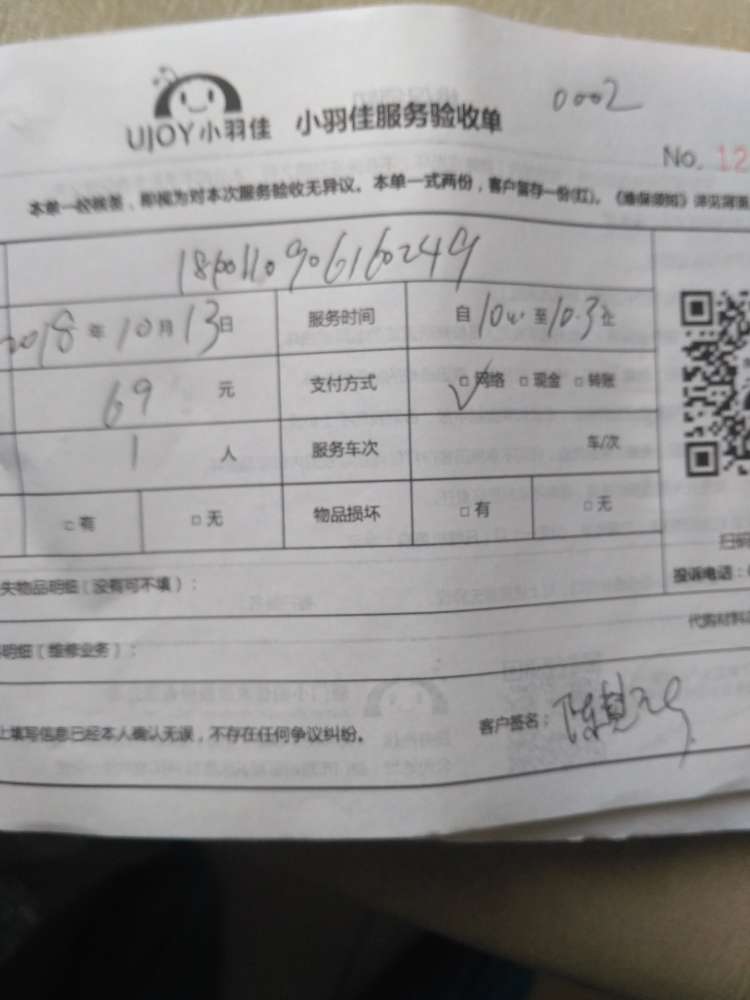 UJOY小羽佳 小羽佳服务验收单 0002
No. 12
本单一经候签，即视为对本次服务验收无异议。本单一式两份，客户留存一份(红)。《维保须知》详见背面
2018年10月13日 服务时间 自10 至10.3止
69元 支付方式 网络 现金 转账
1人 服务车次 车/次
有 无 物品损坏 有 无
扫码
失物品明细（没有可不填）： 投诉电话：
代购材料
明细（维修业务）：
上填写信息已经本人确认无误，不存在任何争议纠纷。 客户签名：